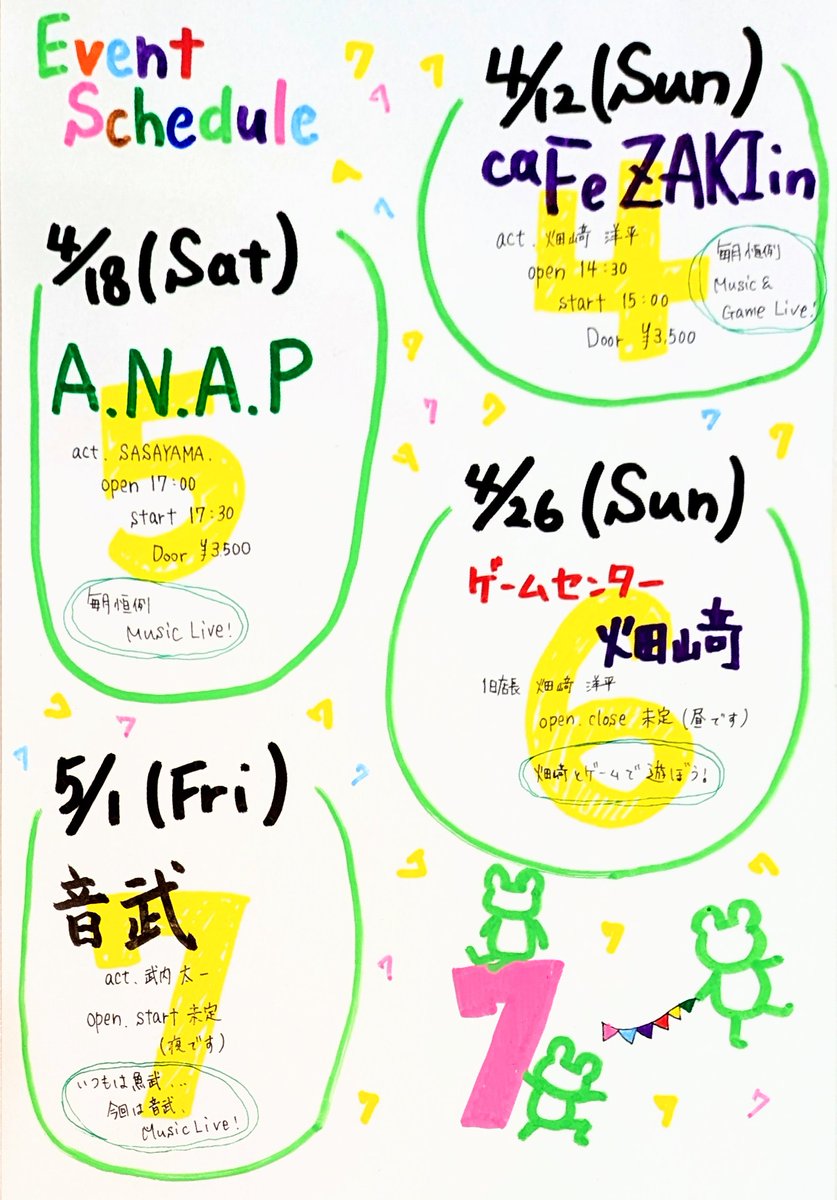 Event
Schedule
4/12 (Sun)
caFe ZAKI in
act. 畑﨑 洋平
open 14:30
start 15:00
Door ¥3,500
毎月恒例
Music &
Game Live!
4
4/18 (Sat)
A.N.A.P
act. SASAYAMA.
open 17:00
start 17:30
Door ¥3,500
毎月恒例
Music Live!
5
4/26 (Sun)
ゲームセンター
畑﨑
1日店長 畑﨑 洋平
open. close 未定 (昼です)
畑﨑とゲームで遊ぼう!
6
5/1 (Fri)
音武
act. 武内 太一
open. start 未定
(夜です)
いつもは魚武...
今回は音武、
Music Live!
7
7